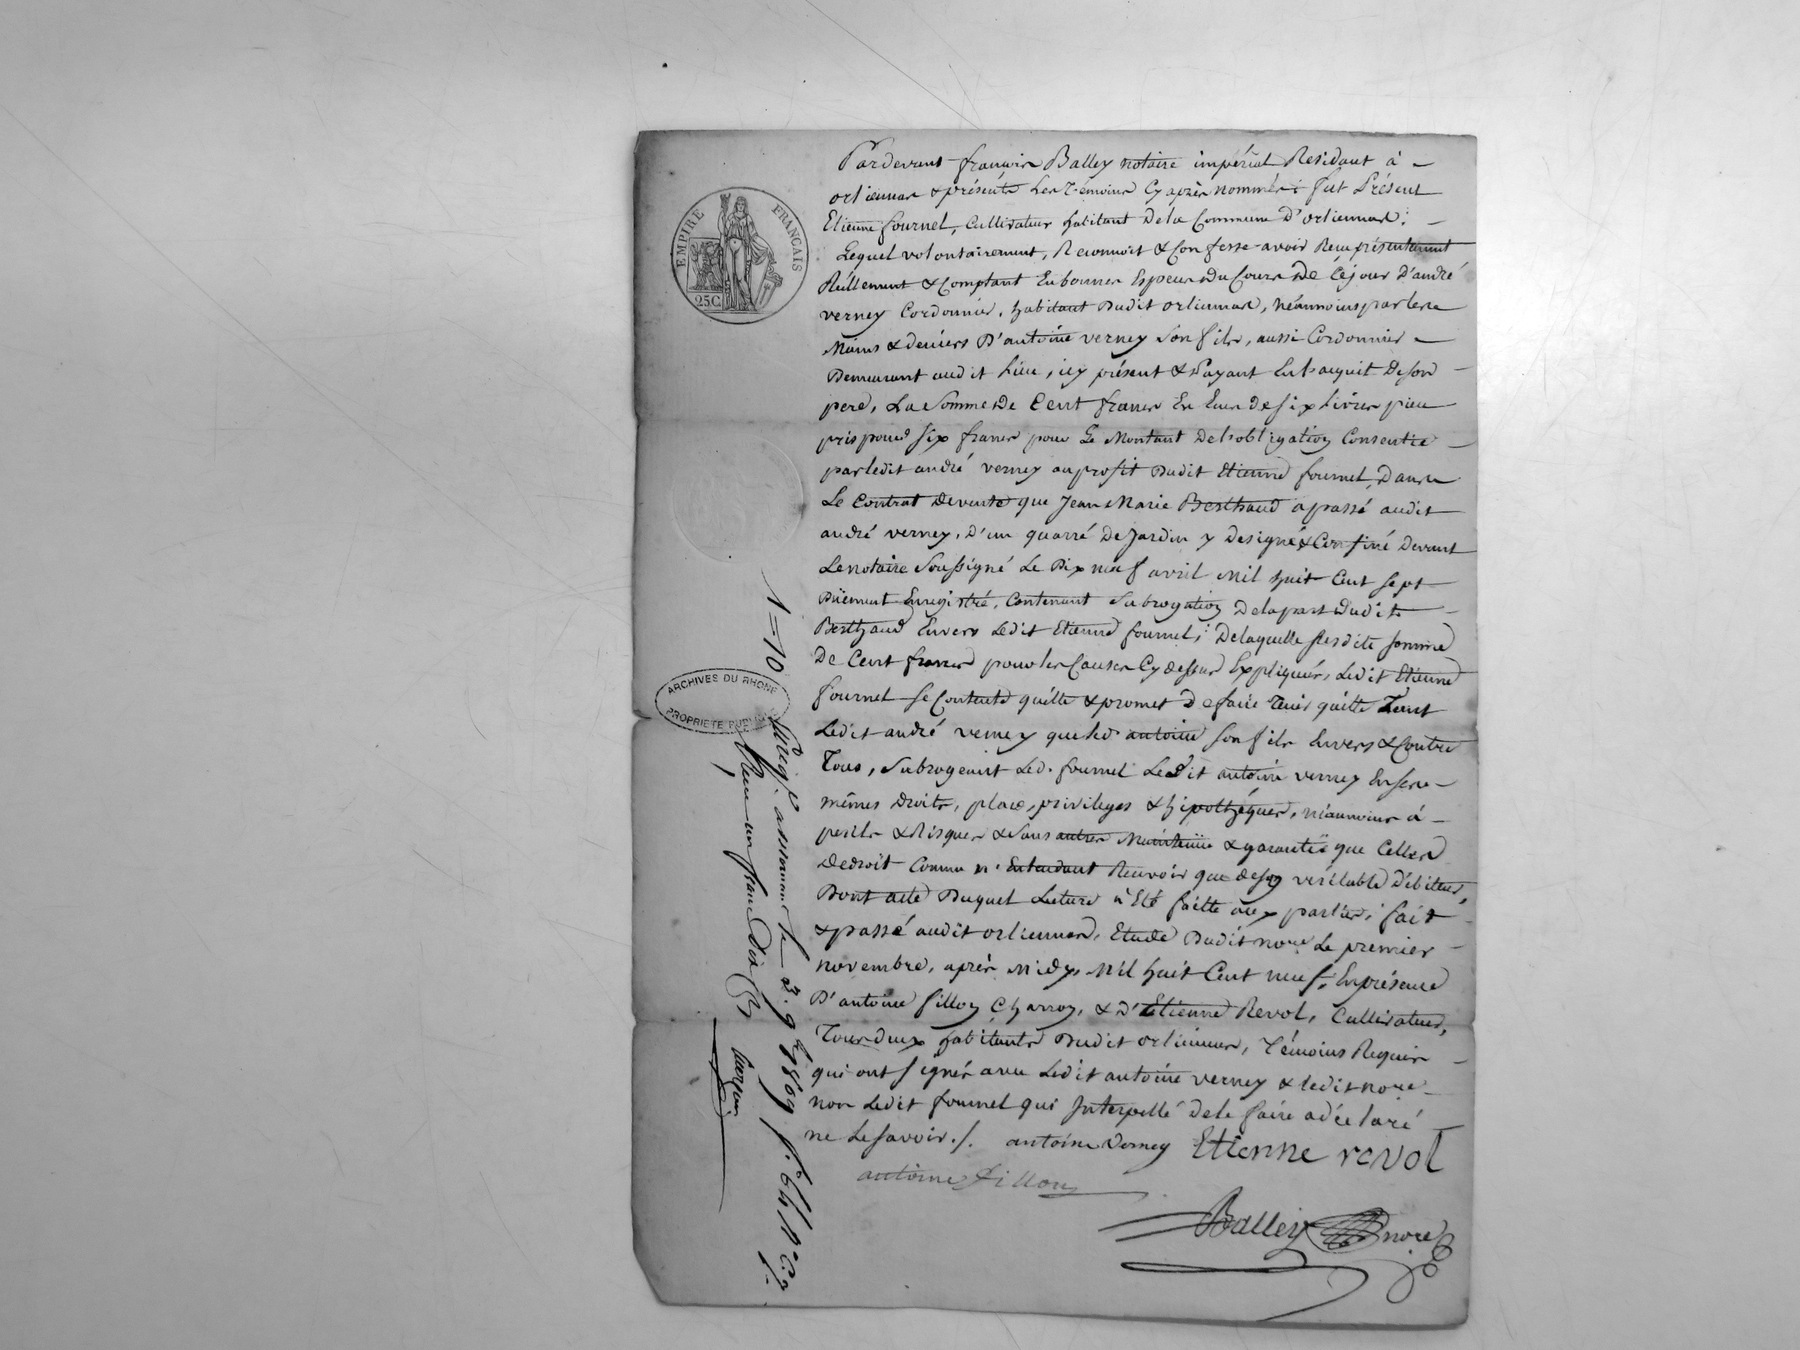 Pardevant françois Balley notaire impérial Résidant à
orlienas & présents Les Témoins Cy après nommés : fut Présent
Etienne fournel, Cultivateur habitant De la Commune D'orlienas ;
Lequel volontairement, Reconnoit & Confesse avoir Reçu présentement
Réellement & Comptant En bonnes Espèces Du Cours De Ce jour D'andré
verney Cordonnier, habitant Dudit orlienas, néanmoins par les
Mains & deniers D'antoine verney Son fils, aussi Cordonnier
Demeurant audit Lieu, icy présent & Payant En l'acquit De Son
pere, La Somme De Cent francs En Ecus de six Livres pieu
pris pour six francs pour Le Montant De L'obligation Consentie
par ledit andré verney au profit Dudit Etienne fournel, Dans
Le Contrat De vente que Jean Marie Berthaud a passé audit
andré verney, D'un quarré De Jardin y designé & Confiné Devant
Le notaire Soussigné Le Dix neuf avril Mil huit Cent sept
Düement Enregistré, Contenant Subrogation De la part Dudit
Berthaud Envers Ledit Etienne fournel ; De laquelle susdite somme
De Cent francs pour les Causes Cy dessus Expliquées, Ledit Etienne
fournel se Contente quitte & promet De faire Tenir quitte Tant
Ledit andré verney que led. antoine son fils Envers & Contre
Tous, Subrogeant Led. fournel Ledit antoine verney En ses
mêmes Droits, place, privileges & hipothéques, néanmoins à
perils & Risques & Sans autres Maintenüe & garantie que Celles
De droit Comme n'Entendant Recevoir que de son véritable Débiteur,
Dont acte Duquel Lecture a Eté faitte aux parties ; fait
& passé audit orlienas, Etude Dudit nore Le premier
novembre, après Midy, Mil huit Cent neuf, En présence
D'antoine fillon Charron, & D'Etienne Revol, Cultivateur,
Tous deux habitants Dudit orlienas, Témoins Requis
qui ont signés avec Ledit antoine verney & ledit nore
non Ledit fournel qui Interpellé de le faire a déclaré
ne Le savoir ./. antoine Verney Etienne revol
antoine fillon
Balley nore
EMPIRE FRANÇAIS
25C
ARCHIVES DU RHONE
PROPRIETE PUBLIQUE
1=10
Reçu un franc dix